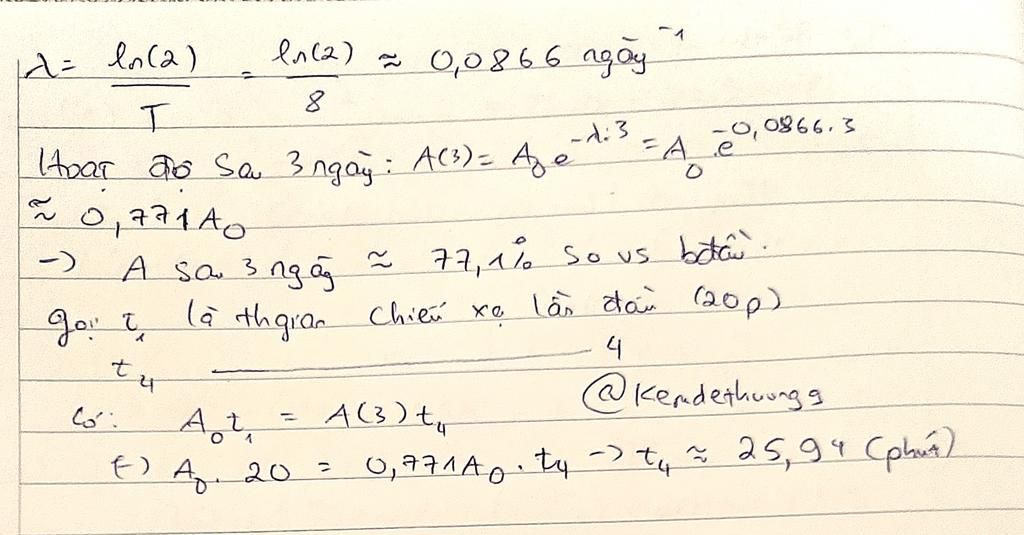 λ = ln(2)/T = ln(2)/8 ≈ 0,0866 ngày⁻¹
Hoạt độ sa 3 ngày: A(3) = A₀ e^(-λ.3) = A₀ .e^(-0,0866.3)
≈ 0,771A₀
-> A sa 3 ngày ≈ 77,1% so vs bđầu.
gọi t₁ là thgian chiếu xạ lần đầu (20p)
t₄ ———— 4
@Kemdethuongg
Có: A₀t₁ = A(3)t₄
(-) A₀. 20 = 0,771A₀ . t₄ -> t₄ ≈ 25,94 (phút)